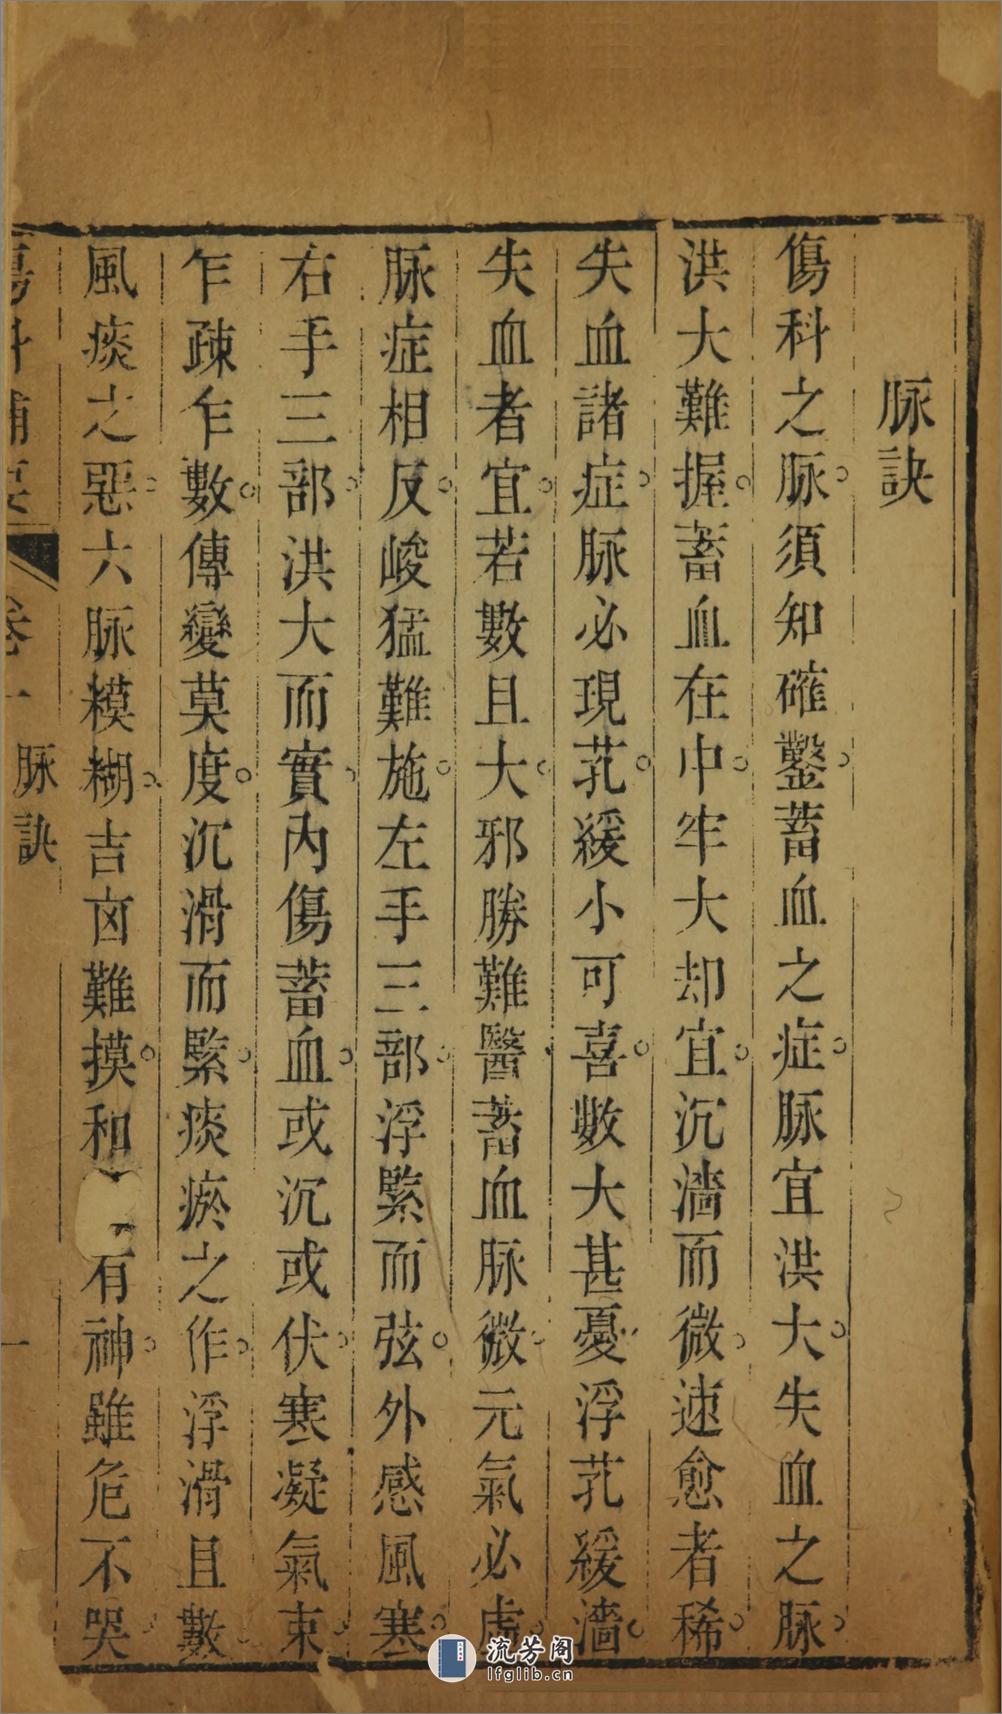 脉訣
傷科之脉須知確鑿蓄血之症脉宜洪大失血之脉
洪大難握蓄血在中牢大却宜沉濇而微速愈者稀
失血諸症脉必現芤緩小可喜數大甚憂浮芤緩濇
失血者宜若數且大邪勝難醫蓄血脉微元氣必虛
脉症相反峻猛難施左手三部浮緊而弦外感風寒
右手三部洪大而實內傷蓄血或沉或伏寒凝氣束
乍疎乍數傳變莫度沉滑而緊痰瘀之作浮滑且數
風痰之惡六脉糢糊吉㐫難摸和有神雖危不哭
傷科補要 卷一 脉訣 一
流芳阁
lfglib.cn